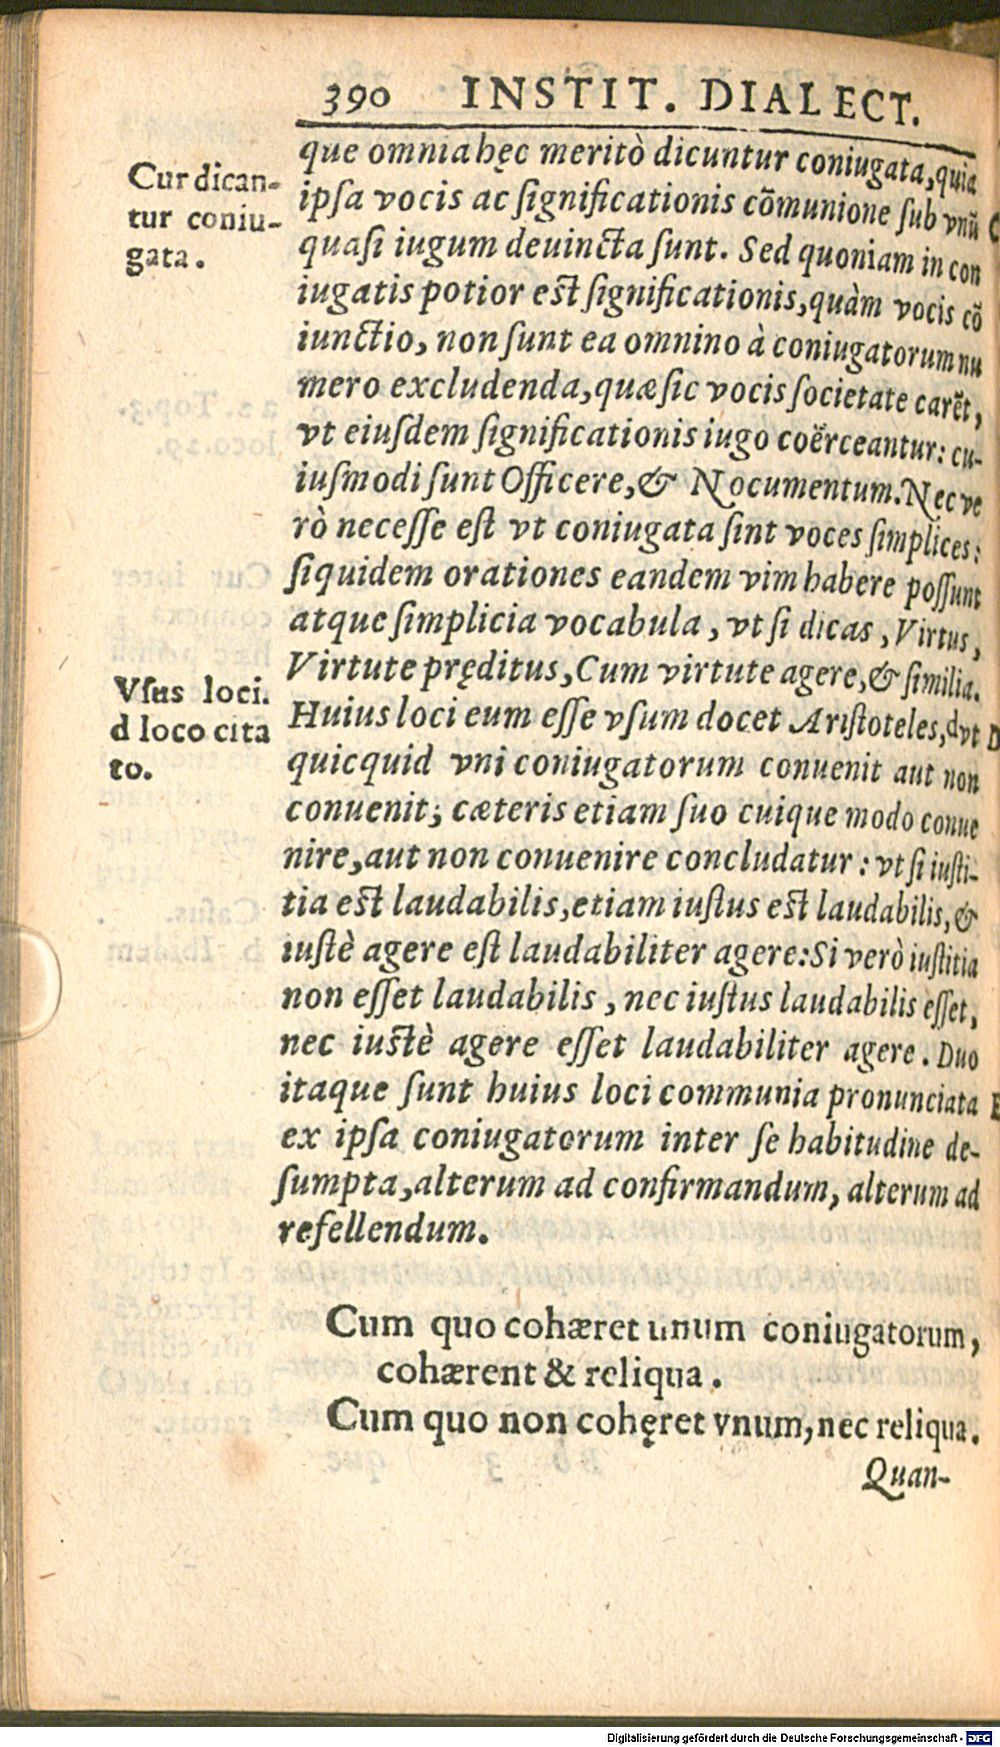 390 INSTIT. DIALECT.
que omnia hęc meritò dicuntur coniugata, quia
Cur dican-
tur coniu-
gata.
ipsa vocis ac significationis cōmunione sub vnū
quasi iugum deuincta sunt. Sed quoniam in con
iugatis potior est significationis, quàm vocis cō
iunctio, non sunt ea omnino à coniugatorum nu
mero excludenda, quæ sic vocis societate carēt,
vt eiusdem significationis iugo coërceantur: cu-
iusmodi sunt Officere, & Nocumentum. Nec ve
rò necesse est vt coniugata sint voces simplices:
siquidem orationes eandem vim habere possunt
atque simplicia vocabula, vt si dicas, Virtus,
Virtute pręditus, Cum virtute agere, & similia.
Vsus loci.
d loco cita
to.
Huius loci eum esse vsum docet Aristoteles, d vt D
quicquid vni coniugatorum conuenit aut non
conuenit; cæteris etiam suo cuique modo conue
nire, aut non conuenire concludatur: vt si iusti-
tia est laudabilis, etiam iustus est laudabilis, &
iustè agere est laudabiliter agere: Si verò iustitia
non esset laudabilis, nec iustus laudabilis esset,
nec iustè agere esset laudabiliter agere. Duo
itaque sunt huius loci communia pronunciata E
ex ipsa coniugatorum inter se habitudine de-
sumpta, alterum ad confirmandum, alterum ad
refellendum.
Cum quo cohæret unum coniugatorum,
cohærent & reliqua.
Cum quo non cohęret vnum, nec reliqua.
Quan-
Digitalisierung gefördert durch die Deutsche Forschungsgemeinschaft - DFG